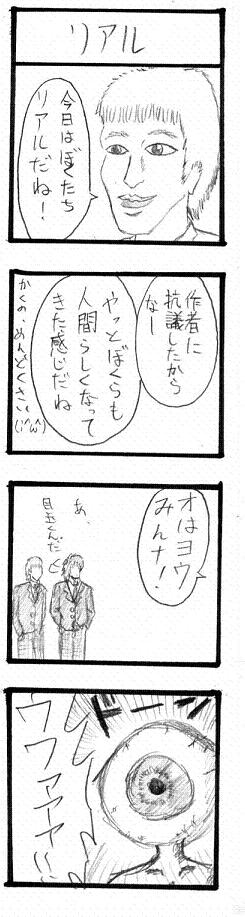 リアル
今日はぼくたち
リアルだね！
作者に
抗議したから
なー
やっとぼくらも
人間らしくなって
きた感じだね
かくの、めんどくさい(;^ω^)
オはヨウ
みんナ！
あ、
目玉くんだ
ドーン
ウワァァァ